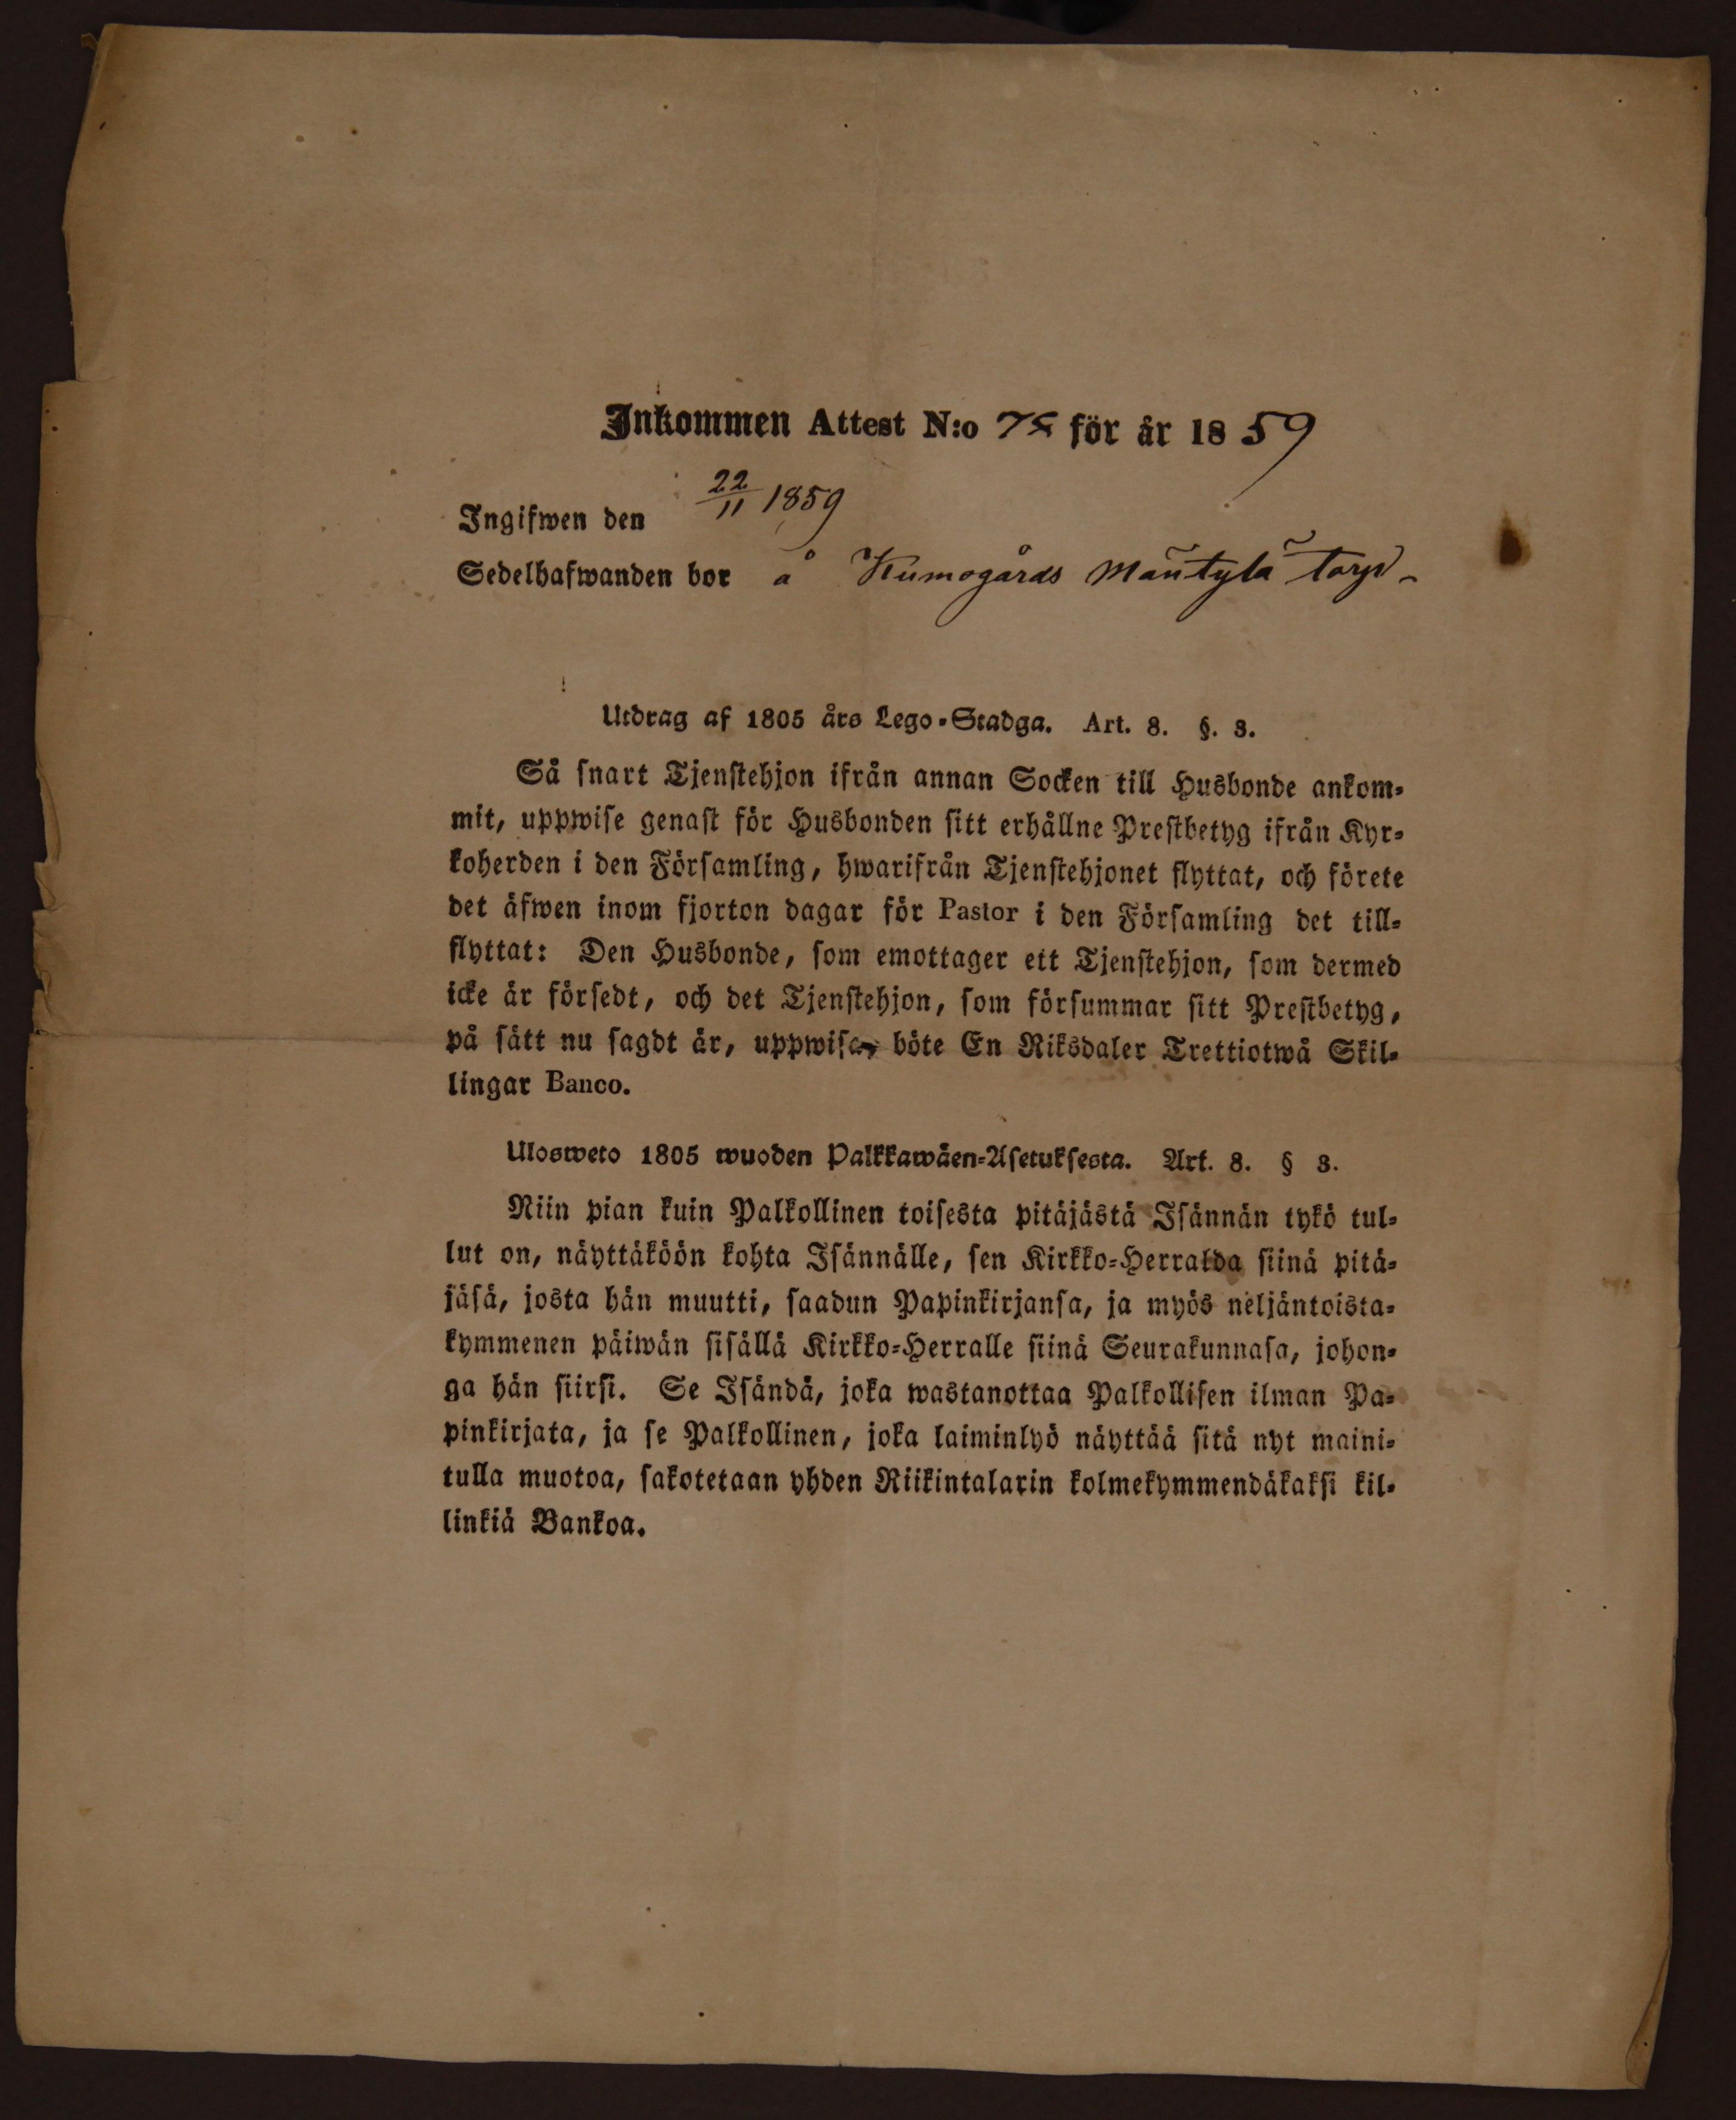 Inkommen Attest N:o för år 1859
Ingifwen den 22/11 1859
Sedelhafwanden bor å Kumogårds Mäntylä torp
Utdrag af 1805 års Lego-Stadga. Art. 8. §. 3.
Så snart Tjenstehjon ifrån annan Socken till Husbonde ankom-
mit, uppwise genast för Husbonden sitt erhållne Prestbetyg ifrån Kyr-
koherden i den Församling, hwarifrån Tjenstehjonet flyttat, och förete
det äfwen inom fjorton dagar för Pastor i den Församling det till-
flyttat: Den Husbonde, som emottager ett Tjenstehjon, som dermed
icke är försedt, och det Tjenstehjon, som försummar sitt Prestbetyg,
på sätt nu sagdt är, uppwisa, böte En Riksdaler Trettiotwå Skil-
lingar Banco.
Ulosweto 1805 wuoden Palkkawäen-Asetuksesta. Art. 8. § 3.
Niin pian kuin Palkollinen toisesta pitäjästä Isännän tykö tul-
lut on, näyttäköön kohta Isännälle, sen Kirkko-Herralda siinä pitä-
jäsä, josta hän muutti, saadun Papinkirjansa, ja myös neljäntoista-
kymmenen päiwän sisällä Kirkko-Herralle siinä Seurakunnasa, johon-
ga hän siirsi. Se Isändä, joka wastanottaa Palkollisen ilman Pa-
pinkirjata, ja se Palkollinen, joka laiminlyö näyttää sitä nyt maini-
tulla muotoa, sakotetaan yhden Riikintalarin kolmekymmendäkaksi kil-
linkiä Bankoa.